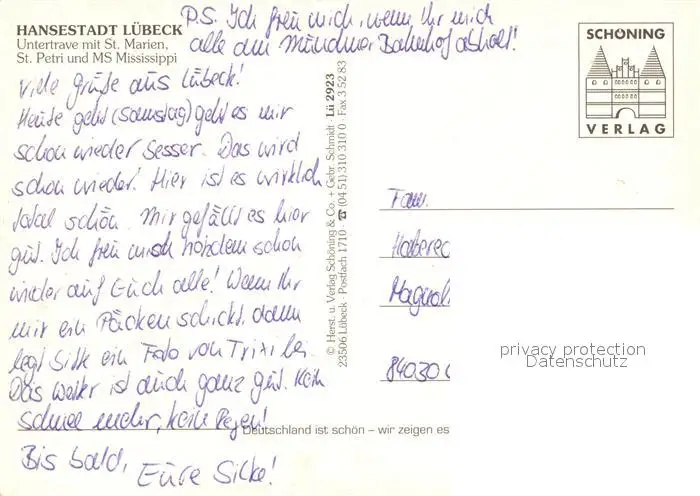 HANSESTADT LÜBECK
Untertrave mit St. Marien,
St. Petri und MS Mississippi
P.S. Ich freu mich, wenn Ihr mich
alle am Münchner Bahnhof abholt!
Viele Grüße aus Lübeck!
Heute geht (Samstag) geht es mir
schon wieder besser. Das wird
schon wieder! Hier ist es wirklich
total schön. Mir gefällt es hier
gut. Ich freu mich trotzdem schon
wieder auf Euch alle! Wenn Ihr
mir ein Päcken schickt, dann
legt bitte ein Foto von Trixi bei.
Das Wetter ist auch ganz gut. Kein
Schnee mehr, kein Regen!
Bis bald, Eure Silke!
© Herst. u. Verlag Schöning & Co. + Gebr. Schmidt · Lü 2923
23506 Lübeck · Postfach 1710 · ☎ (04 51) 310 310 0 · Fax 3 52 83
SCHÖNING
VERLAG
Fam.
84030
privacy protection
Datenschutz
Deutschland ist schön – wir zeigen es